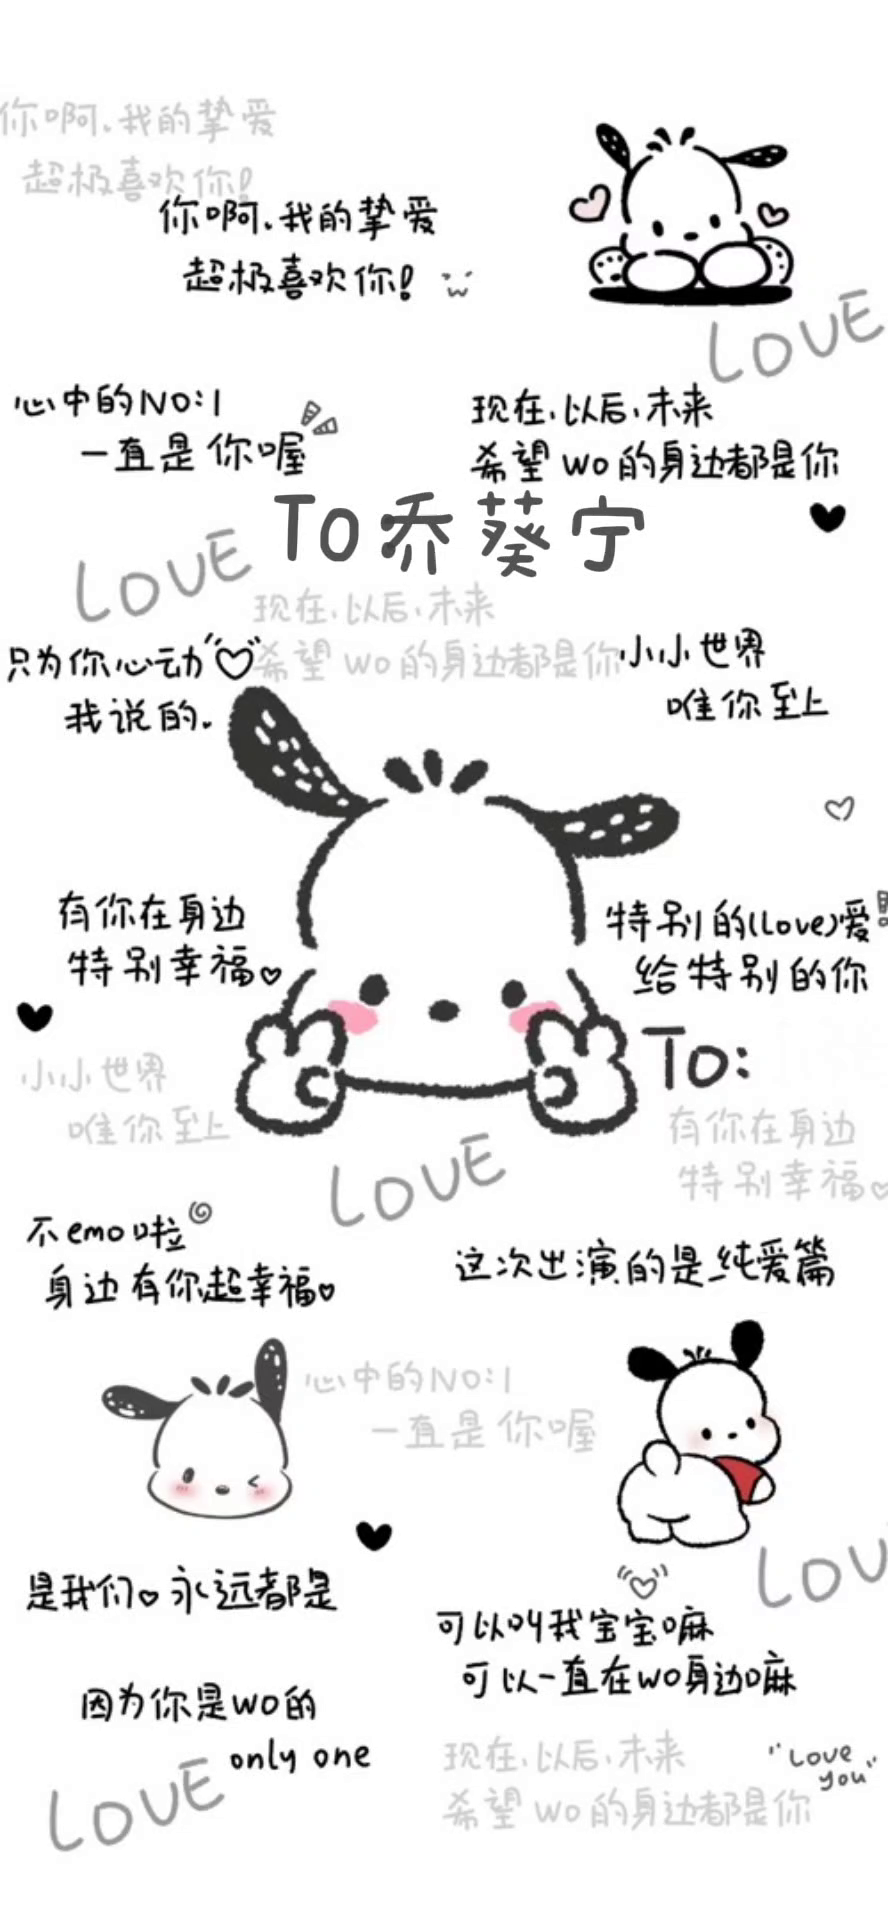 你啊、我的挚爱
超极喜欢你!
你啊、我的挚爱
超极喜欢你!
LOVE
心中的NO:1
一直是你喔
现在、以后、未来
希望wo的身边都是你
To乔葵宁
LOVE
现在、以后、未来
希望wo的身边都是你
只为你心动
我说的.
小小世界
唯你至上
有你在身边
特别幸福
特别的(love)爱
给特别的你
To:
小小世界
唯你至上
有你在身边
特别幸福
LOVE
不emo啦
身边有你超幸福
这次出演的是纯爱篇
心中的NO:1
一直是你喔
LOV
是我们 永远都是
可以叫我宝宝嘛
可以一直在wo身边嘛
因为你是wo的
only one
现在、以后、未来
希望wo的身边都是你
"Love
you"
LOVE